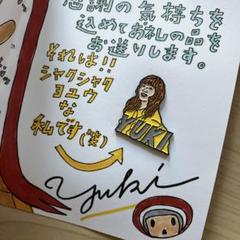 感謝の気持ちを
込めてお礼の品を
お送りします。
それは!!
シャクシャク
ヨユウ
な
私です(笑)
YUKI
Yuki